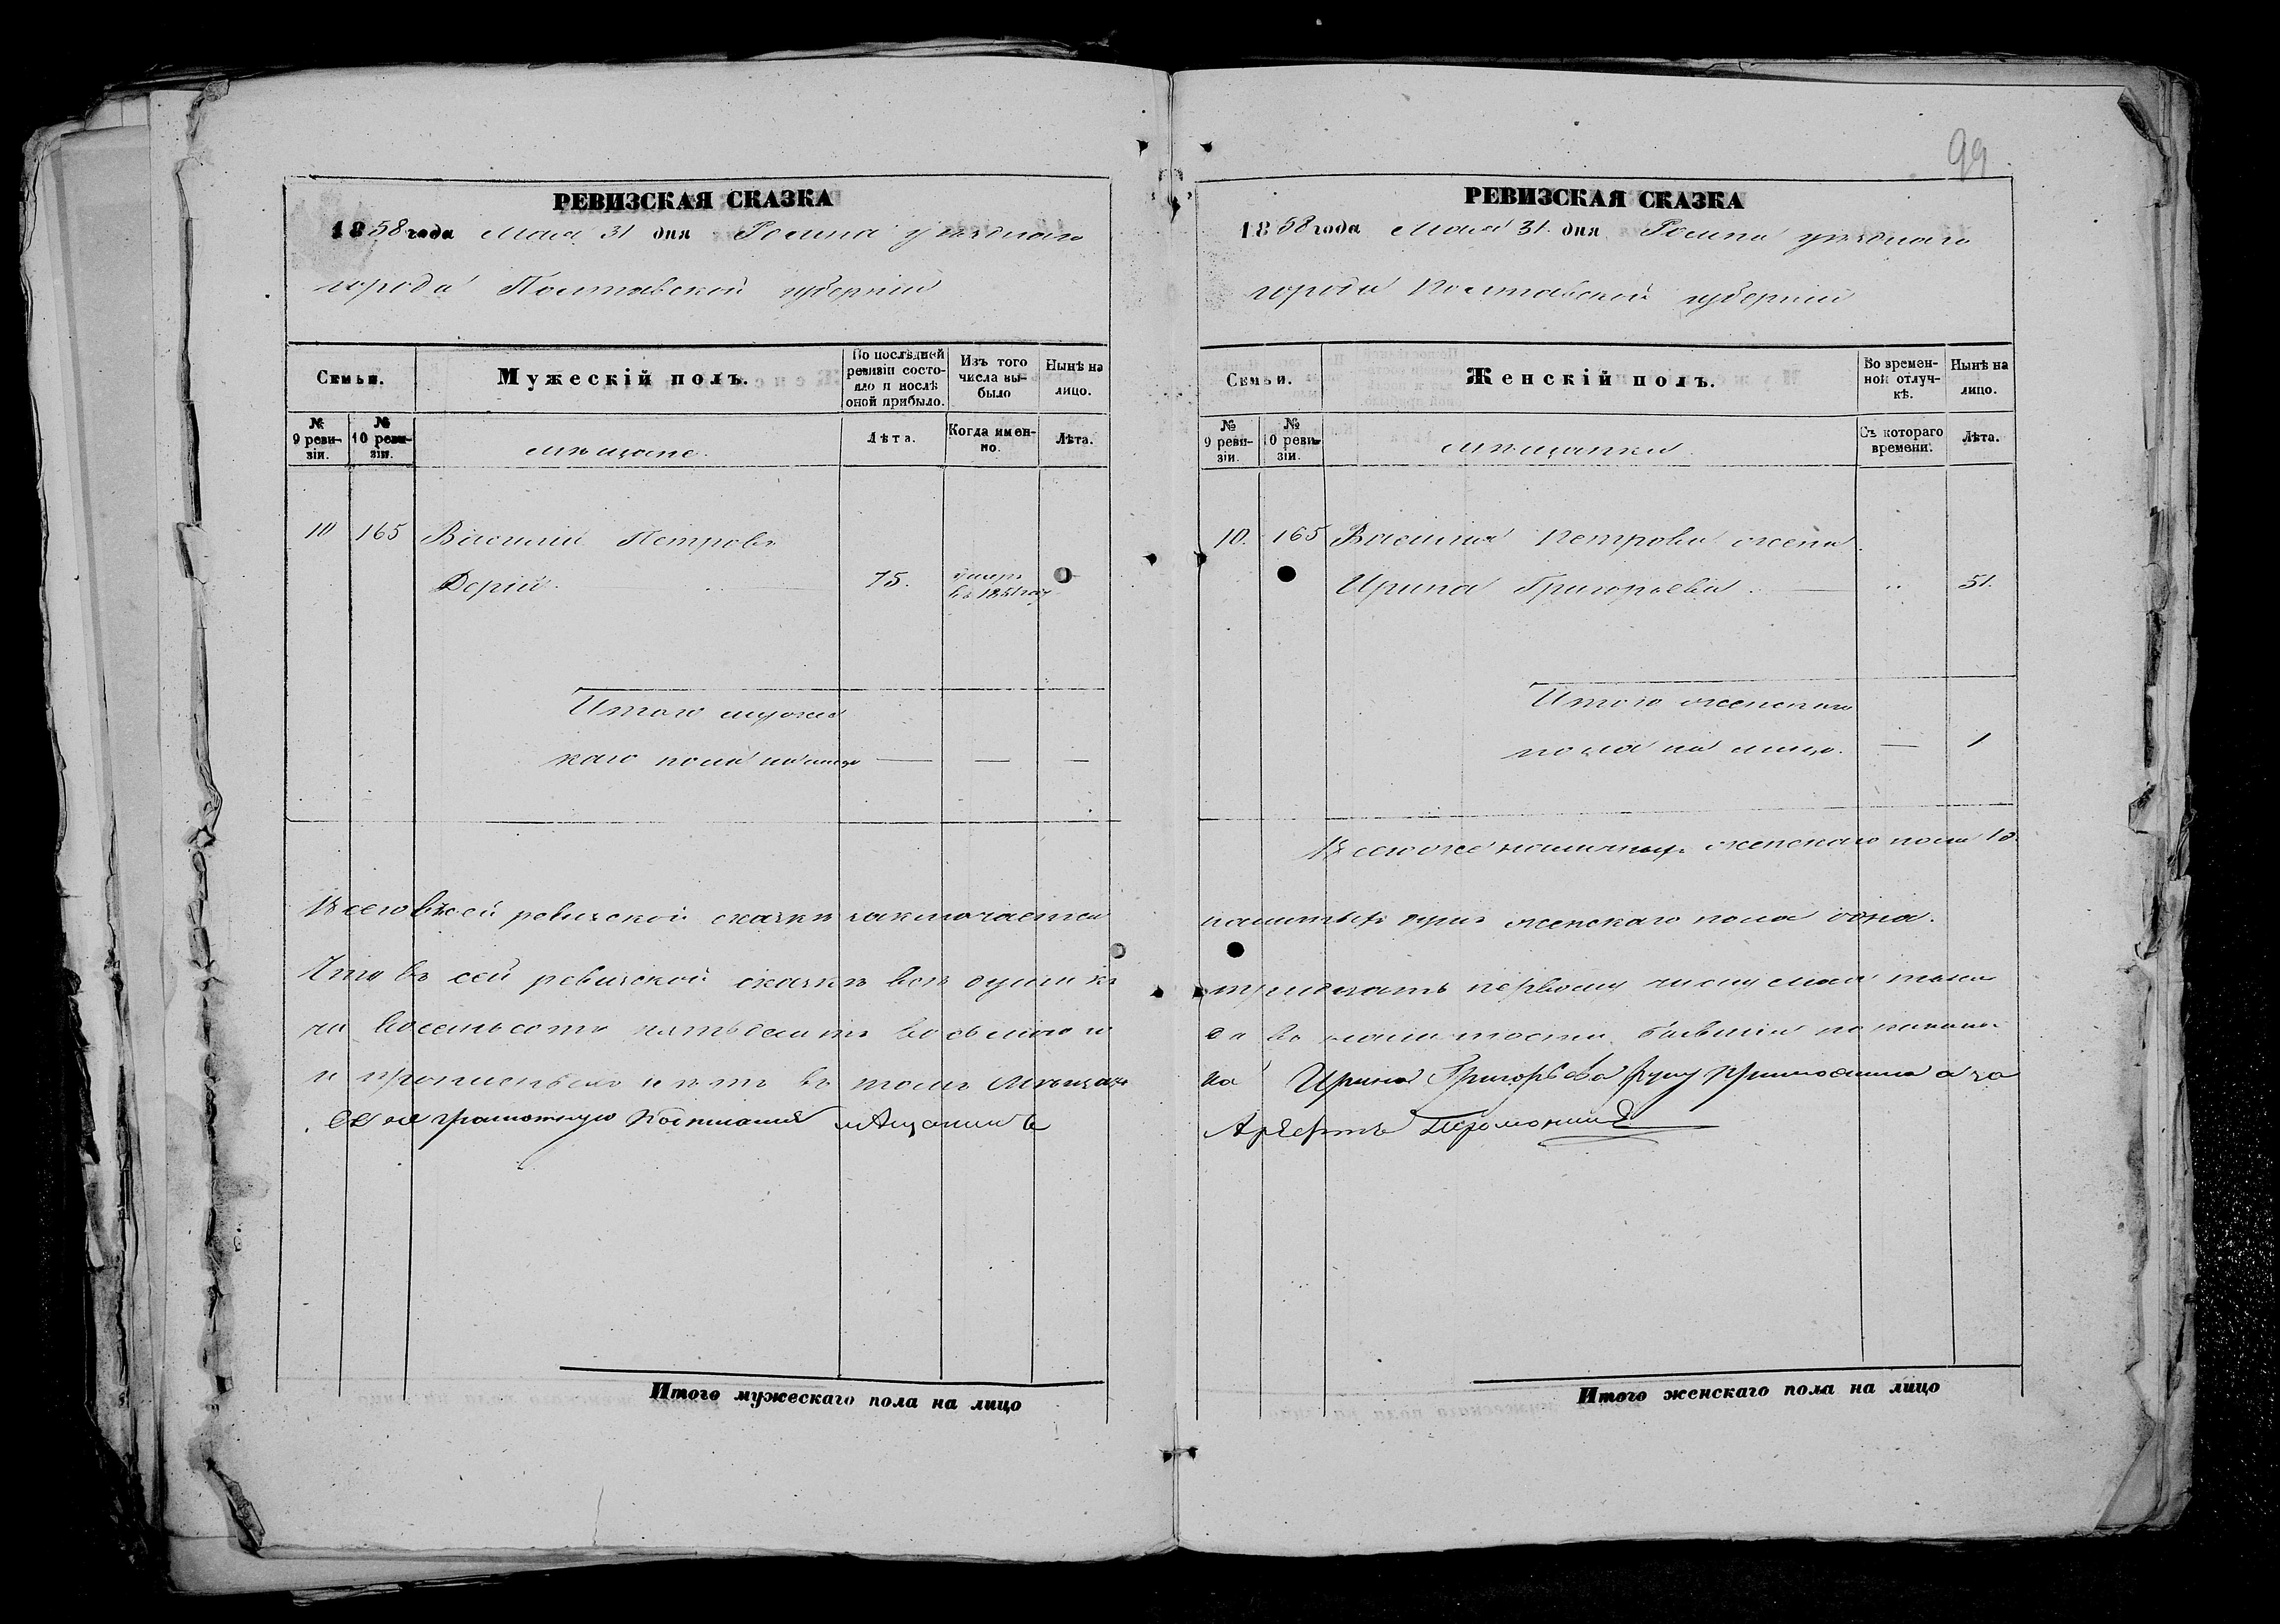 99
РЕВИЗСКАЯ СКАЗКА
1858 года Мая 31 дня Ромна уѣзднаго
города Полтавской губерніи
Семьи.
Мужескій полъ.
По послѣдней ревизіи состояло и послѣ оной прибыло.
Изъ того числа выбыло
Нынѣ на лицо.
№ 9 ревизіи.
№ 10 ревизіи.
мѣщане.
Лѣта.
Когда именно.
Лѣта.
10 165 Василий Петровъ
Дерій. 75. умеръ въ 1851 году
Итого мужес
каго пола на лицо — — —
Всего въ сей ревизской сказкѣ заключается
Что въ сей ревизской сказкѣ всѣ души къ
ча восемьсотъ пятьдесятъ восьмого
и прописныхъ нѣтъ въ томъ
неграмотную подписалъ мѣщанинъ
РЕВИЗСКАЯ СКАЗКА
1858 года Мая 31. дня Ромна уѣзднаго
города Полтавской губерніи
Семьи.
Женскій полъ.
Во временной отлучкѣ.
Нынѣ на лицо.
№ 9 ревизіи.
№ 10 ревизіи.
мѣщанки.
Съ котораго времени.
Лѣта.
10. 165 Василия Петрова жена
Ирина Григорьева. „ 51.
Итого женскаго
пола на лицо. — 1
Всего же наличныхъ женскаго пола
наличныхъ душъ женскаго пола одна.
тридцать первому числу мая тыся
въ наличности бывшия показаны
на Ирина Григорьева руку приложила а за
Итого мужескаго пола на лицо
Итого женскаго пола на лицо